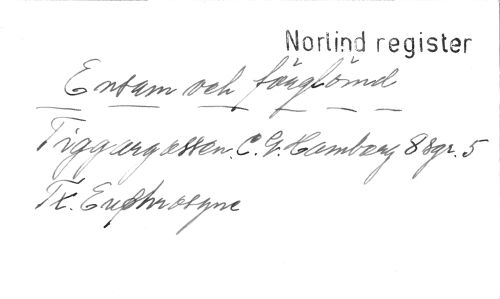 Norlind register
Ensam och förglömd
Tiggargossen. C. G. Hamberg 8 sgr. 5
Tx. Euphrosyne